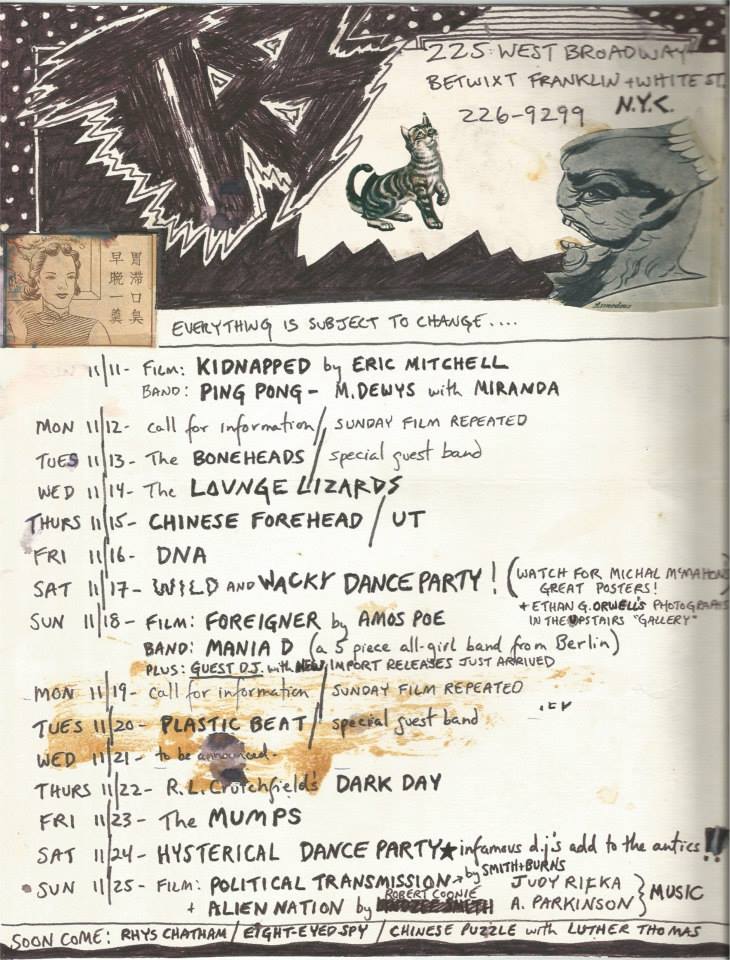 225 WEST BROADWAY
BETWIXT FRANKLIN + WHITE ST.
226-9299 N.Y.C.
胃滞口臭
早晚一羹
EVERYTHING IS SUBJECT TO CHANGE....
11/11- FILM: KIDNAPPED by ERIC MITCHELL
BAND: PING PONG - M. DEWYS with MIRANDA
MON 11/12- call for information / SUNDAY FILM REPEATED
TUES 11/13- The BONEHEADS / special guest band
WED 11/14- The LOUNGE LIZARDS
THURS 11/15- CHINESE FOREHEAD / UT
FRI 11/16- DNA
SAT 11/17- WILD AND WACKY DANCE PARTY! (WATCH FOR MICHAL McMAHONS
GREAT POSTERS!
+ ETHAN G. ORWELL'S PHOTOGRAPHS
IN THE UPSTAIRS "GALLERY"
SUN 11/18- FILM: FOREIGNER by AMOS POE
BAND: MANIA D (a 5 piece all-girl band from Berlin)
PLUS: GUEST D.J. with NEW IMPORT RELEASES JUST ARRIVED
MON 11/19- call for information / SUNDAY FILM REPEATED
TUES 11/20- PLASTIC BEAT / special guest band
WED 11/21- to be announced.
THURS 11/22- R.L. Crutchfield's DARK DAY
FRI 11/23- The MUMPS
SAT 11/24- HYSTERICAL DANCE PARTY★ infamous d.j.'s add to the antics!!
SUN 11/25- FILM: POLITICAL TRANSMISSION → by SMITH+BURNS
+ ALIEN NATION by ROBERT COONIE
JUDY RIFKA
A. PARKINSON } MUSIC
SOON COME: RHYS CHATHAM / EIGHT-EYED SPY / CHINESE PUZZLE with LUTHER THOMAS